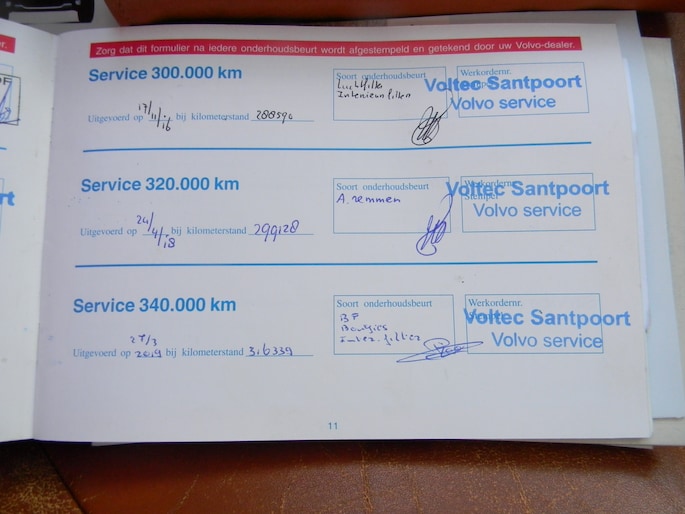 r.
Zorg dat dit formulier na iedere onderhoudsbeurt wordt afgestempeld en getekend door uw Volvo-dealer.
Service 300.000 km
Soort onderhoudsbeurt
Werkordernr.
Luchtfilter
Voltec Santpoort
Interieurfilter
Volvo service
Uitgevoerd op 17/11/16 bij kilometerstand 288590
Service 320.000 km
Soort onderhoudsbeurt
Werkordernr.
Stempel
Voltec Santpoort
A. remmen
Volvo service
Uitgevoerd op 24/4/18 bij kilometerstand 299128
Service 340.000 km
Soort onderhoudsbeurt
Werkordernr.
BF
Voltec Santpoort
Bougies
Inter. filter
Volvo service
Uitgevoerd op 27/3 2019 bij kilometerstand 316339
11